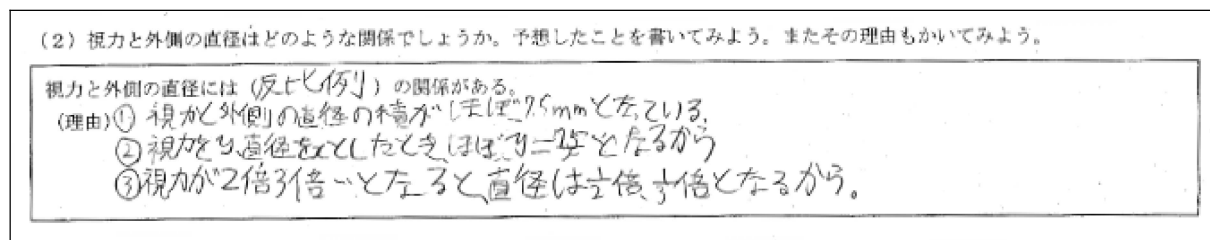 (2) 視力と外側の直径はどのような関係でしょうか。予想したことを書いてみよう。またその理由もかいてみよう。
視力と外側の直径には(反比例)の関係がある。
(理由)① 視力と外側の直径の積がほぼ7.5mmとなっている。
②視力をy、直径をxとしたとき、ほぼy=7.5/xとなるから
③視力が2倍3倍…となると、直径は1/2倍、1/3倍となるから。